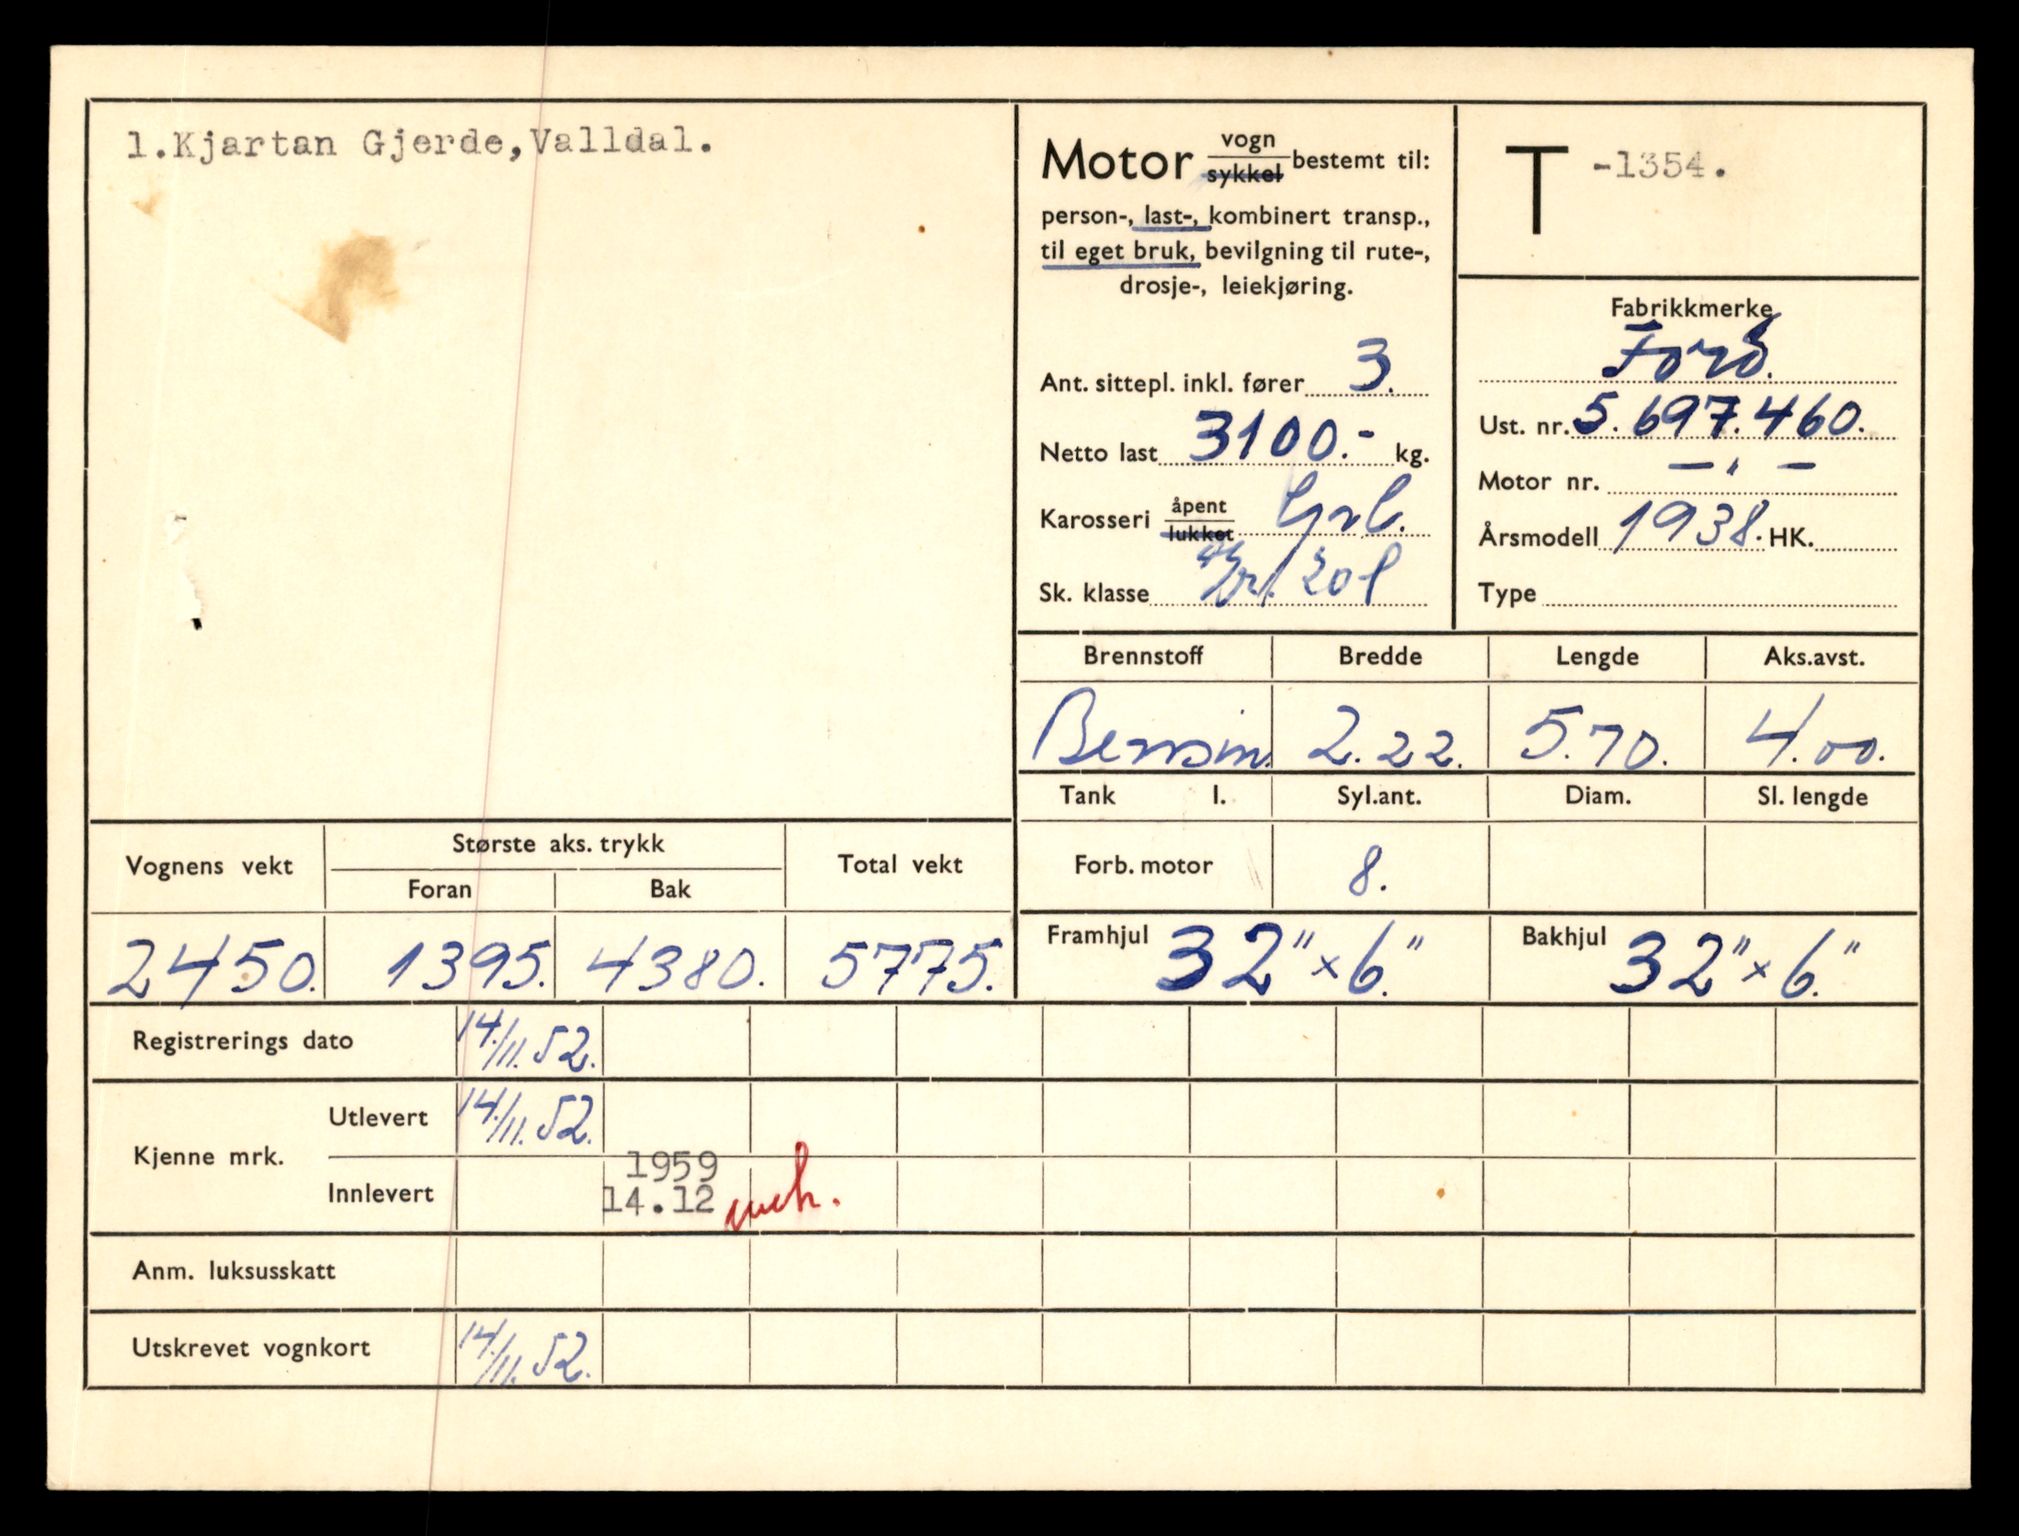 1.Kjartan Gjerde,Valldal.
Motor vogn sykkel bestemt til:
person-, last-, kombinert transp.,
til eget bruk, bevilgning til rute-,
drosje-, leiekjøring.
Ant. sittepl. inkl. fører 3.
Netto last 3100.- kg.
Karosseri åpent lukket
Sk. klasse
T -1354.
Fabrikkmerke
Ford.
Ust. nr. 5.697.460.
Motor nr. — " —
Årsmodell 1938. HK.
Type
Brennstoff Bredde Lengde Aks.avst.
Bensin. 2.22. 5.70. 4.00.
Tank l. Syl.ant. Diam. Sl. lengde
Forb. motor 8.
Framhjul 32" × 6." Bakhjul 32" × 6."
Vognens vekt Største aks. trykk Total vekt
Foran Bak
2450. 1395. 4380. 5775.
Registrerings dato 14./11.52.
Kjenne mrk. Utlevert 14./11.52.
Innlevert 1959
14.12
Anm. luksusskatt
Utskrevet vognkort 14./11.52.